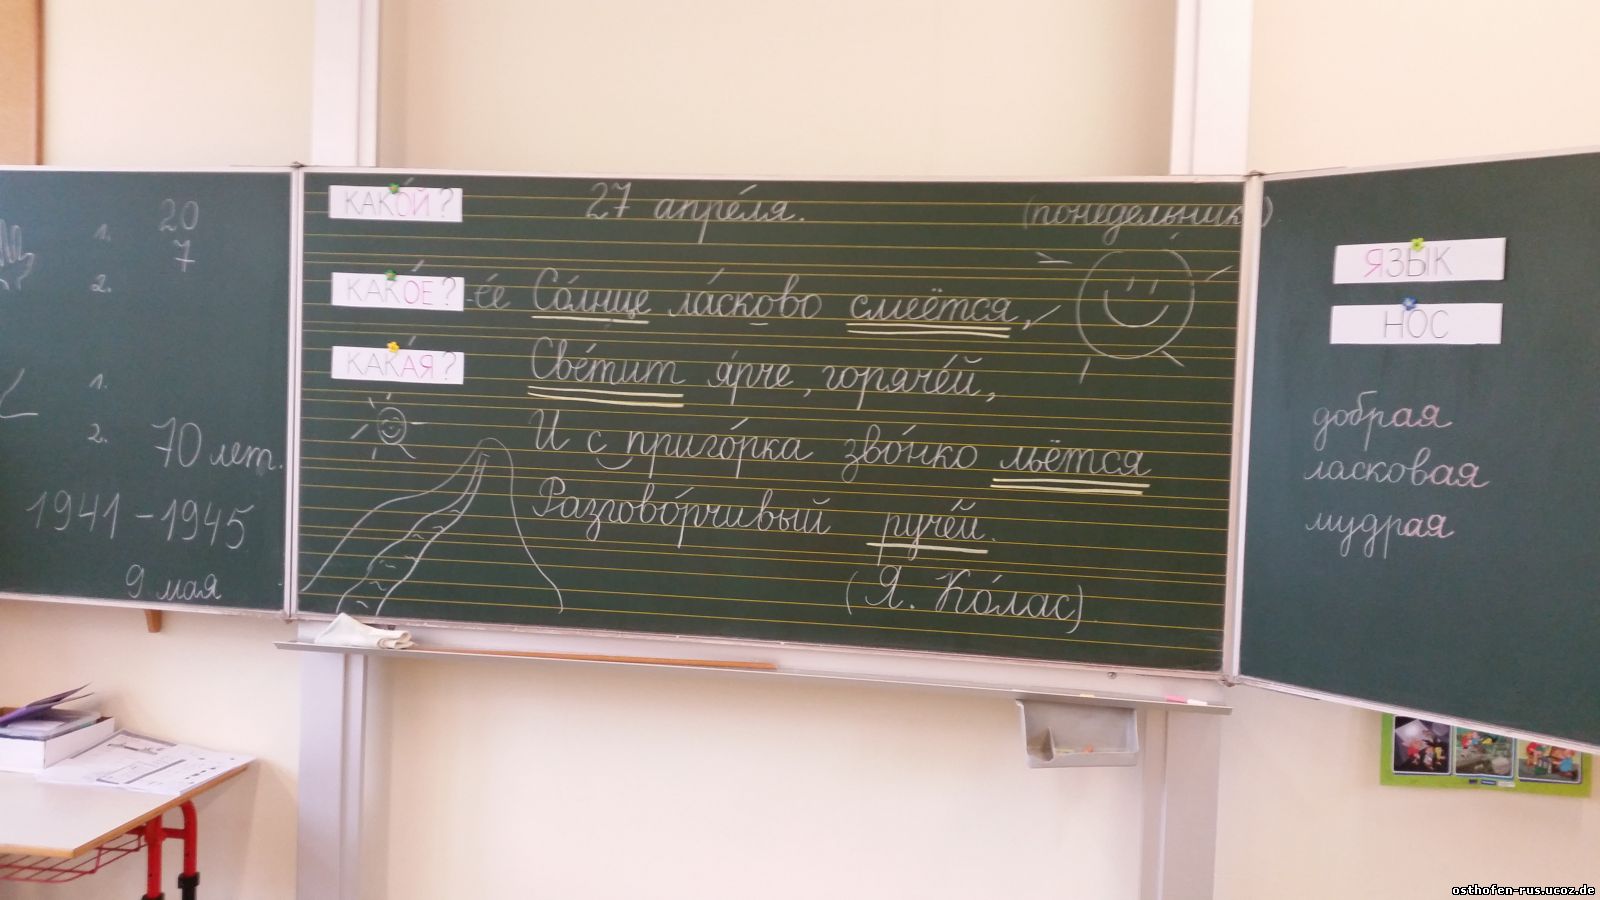 1. 20
7
2.
1.
2. 70 лет.
1941 - 1945
9 мая
КАКО́Й?
27 апре́ля.
(понедельник)
КАКО́Е? -ее
Со́лнце ла́сково смеётся,
КАКА́Я?
Све́тит я́рче, горяче́й,
И с приго́рка зво́нко льётся
Разгово́рчивый руче́й.
(Я. Ко́лас)
ЯЗЫК
НОС
добрая
ласковая
мудрая
osthofen-rus.ucoz.de